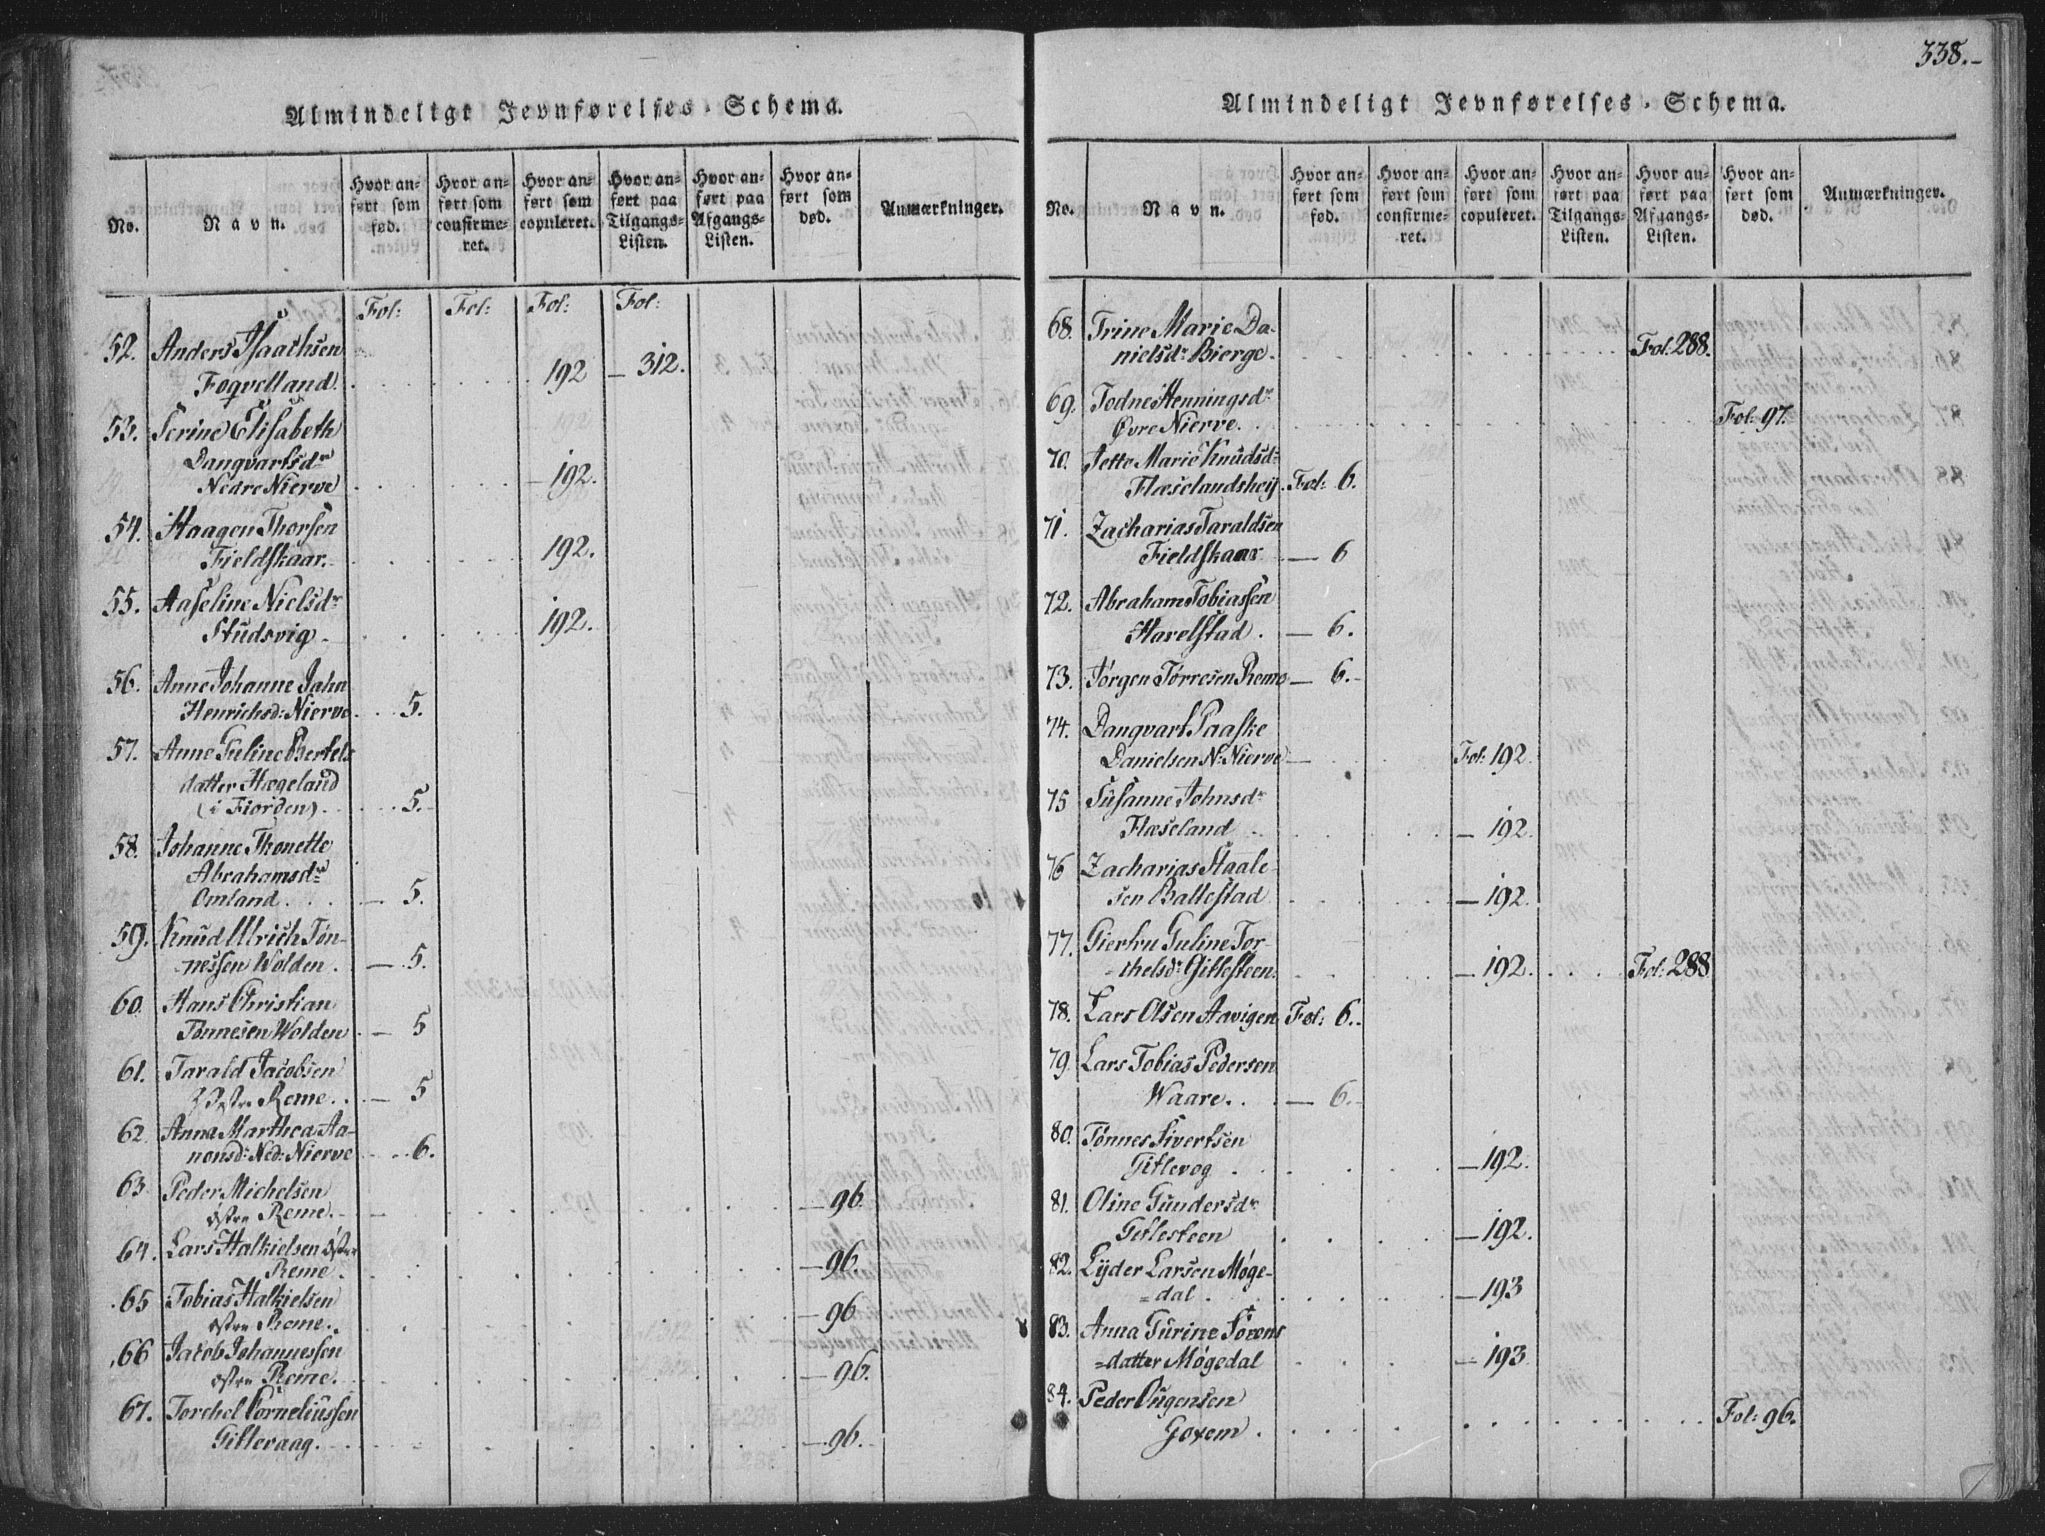 338.-
Almindeligt Jevnførelses-Schema.
No.
Navn.
Hvor an-
ført som
fød.
Hvor an-
ført som
confirme-
ret.
Hvor an-
ført som
copuleret.
Hvor an-
ført paa
Tilgangs-
Listen.
Hvor an-
ført paa
Afgangs-
Listen.
Hvor an-
ført som
død.
Anmærkninger.
Fol: Fol: Fol: Fol:
52. Anders Isaachsen
Foqvelland. 192 - 312.
53. Serine Elisabeth
Danqvartsdr
Nedre Nierve - 192.
54. Haagen Thorsen
Fieldskaar. 192.
55. Aaseline Nielsdr
Studsvig. 192.
56. Anne Johanne Jahn
Henrichsd: Nierve 5.
57. Anne Guline Bertels
datter Hægeland
(i Fiorden) 5.
58. Johanne Thonette
Abrahamsdr
Omland. - 5.
59. Knud Ulrich Tøn-
nessen Wolden. - 5.
60. Hans Christian
Tønnesen Wolden - 5
61. Tarald Jacobsen
Østre Reme. - 5
62. Anna Marthea Aa-
nonsd: Ned: Nierve 6.
63. Peder Michelsen
østre Reme. - 96.
64. Lars Halkielsen østre
Reme. - 96.
65 Tobias Halkielsen
østre Reme. - 96.
66 Jacob Johannessen
østre Reme. - 96.
67. Torchel Corneliussen
Gitlevaag. - 96.
Almindeligt Jevnførelses-Schema.
No.
Navn.
Hvor an-
ført som
fød.
Hvor an-
ført som
confirme-
ret.
Hvor an-
ført som
copuleret.
Hvor an-
ført paa
Tilgangs-
Listen.
Hvor an-
ført paa
Afgangs-
Listen.
Hvor an-
ført som
død.
Anmærkninger.
68. Trine Marie Da-
nielsdr Bierge. Fol: 288.
69. Todne Henningsdr
Øvre Nierve. Fol: 97.
70. Jette Marie Knudsdr
Flæselandsheij. Fol: 6.
71. Zacharias Taraldsen
Fieldskaar - 6
72. Abraham Tobiassen
Harelstad. - 6.
73. Jørgen Tørresen Reme - 6.
74. Danqvart Paaske
Danielsen N: Nierve - Fol: 192
75 Susanne Johnsdr
Flæseland - 192.
76 Zacharias Staale-
sen Ballestad - 192.
77. Giertru Guline Tor-
kelsd: Gitlesteen. - 192. Fol: 288
78. Lars Olsen Aavigen Fol: 6.
79. Lars Tobias Pedersen
Waare. - 6.
80. Tønnes Sivertsen
Gitlevog - 192.
81. Oline Gundersdr
Gitlesteen - 192.
82. Lyder Larsen Møge-
=dal. - 193
83. Anna Gurine Sørens
=datter Møgedal - 193
84. Peder Augensen
Goxem. Fol: 96.